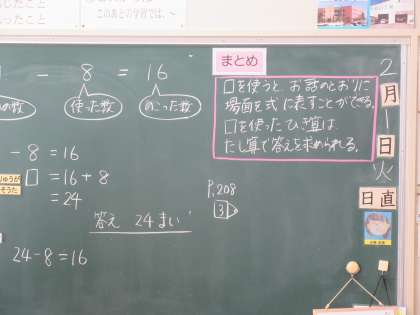 このあとの学習では、〜
- 8 = 16
の数
使った数
のこった数
まとめ
□を使うと、お話のとおりに
場面を式に表すことができる。
□を使ったひき算は
たし算で答えを求められる。
- 8 = 16
□ = 16 + 8
= 24
答え 24まい
24-8=16
P.208
3
2
月
1
日
火
日直